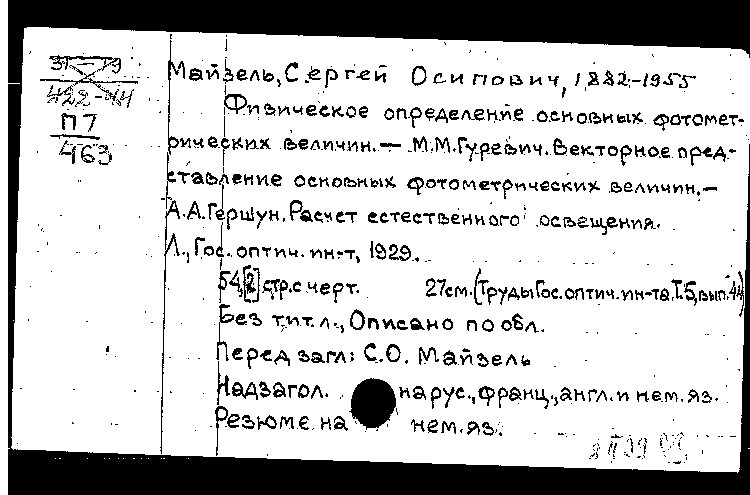 31-79
422-44
П7
463
Майзель, Сергей Осипович, 1882-1955
Физическое определение основных фотомет-
рических величин.— М.М.Гуревич. Векторное пред-
ставление основных фотометрических величин.—
А.А.Гершун. Расчет естественного освещения.
Л., Гос. оптич. ин-т, 1929.
54,[2] стр. с черт. 27см. (Труды Гос. оптич. ин-та. Т.5, вып. 44)
Без тит. л., Описано по обл.
Перед загл: С.О. Майзель
Надзагол. на рус., франц., англ. и нем. яз.
Резюме на нем. яз.